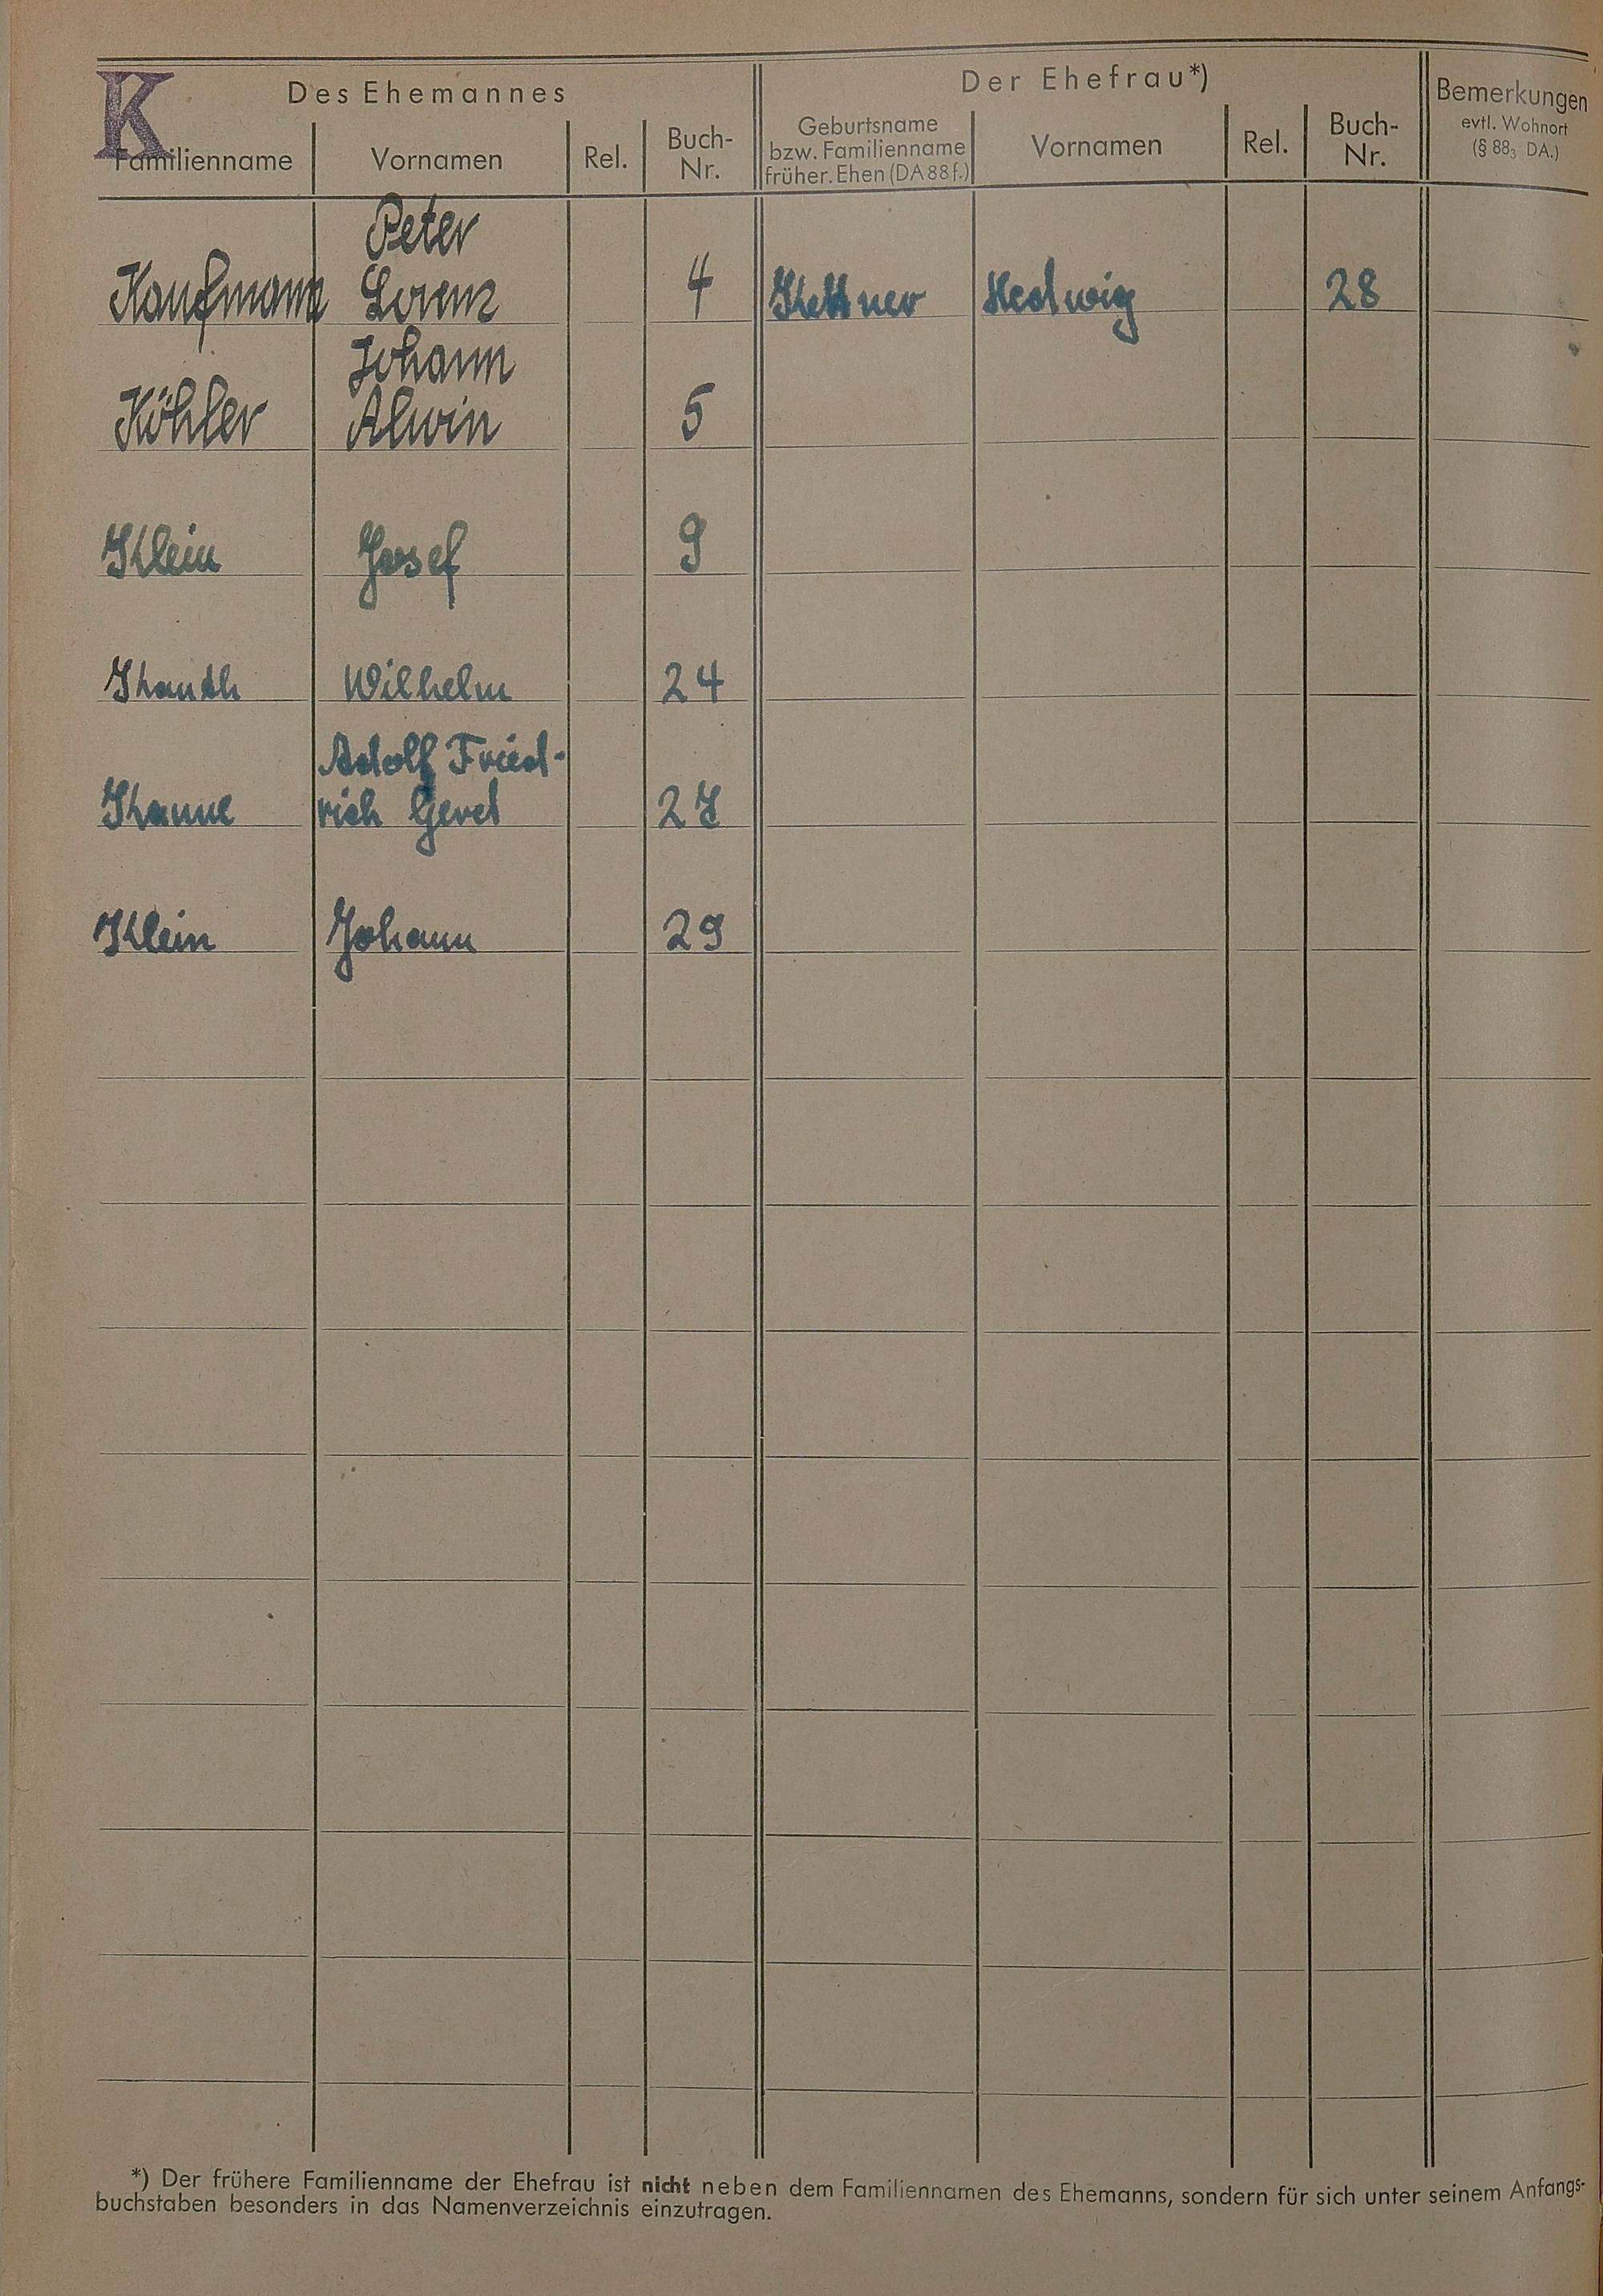 K
Des Ehemannes
Der Ehefrau*)
Bemerkungen
evtl. Wohnort
(§ 88₃ DA.)
Familienname
Vornamen
Rel.
Buch-
Nr.
Geburtsname
bzw. Familienname
früher. Ehen (DA 88 f.)
Vornamen
Rel.
Buch-
Nr.
Peter
Kaufmann Lorenz 4 Kettner Hedwig 28
Johann
Köhler Alwin 5
Klein Josef 9
Wilhelm 24
Adolf Fried-
Kanne rich Gerd 27
Klein Johann 29
*) Der frühere Familienname der Ehefrau ist nicht neben dem Familiennamen des Ehemanns, sondern für sich unter seinem Anfangs-
buchstaben besonders in das Namenverzeichnis einzutragen.